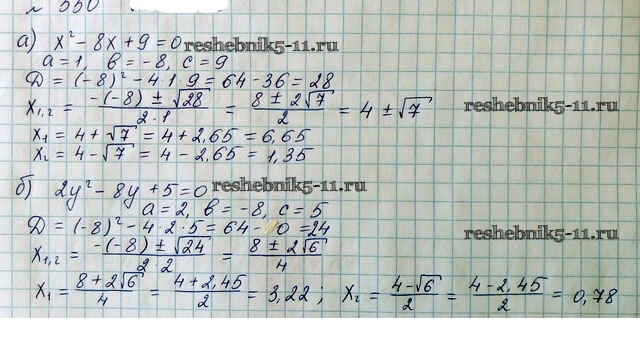 № 550
а) x² - 8x + 9 = 0 reshebnik5-11.ru
a = 1, b = -8, c = 9
D = (-8)² - 4·1·9 = 64 - 36 = 28
x₁,₂ = (-(-8) ± √28)/(2·1) = (8 ± 2√7)/2 = 4 ± √7 reshebnik5-11.ru
x₁ = 4 + √7 = 4 + 2,65 = 6,65
x₂ = 4 - √7 = 4 - 2,65 = 1,35
б) 2y² - 8y + 5 = 0 reshebnik5-11.ru
a = 2, b = -8, c = 5
D = (-8)² - 4·2·5 = 64 - 40 = 24
x₁,₂ = (-(-8) ± √24)/(2·2) = (8 ± 2√6)/4 reshebnik5-11.ru
x₁ = (8 + 2√6)/4 = (4 + 2,45)/2 = 3,22; x₂ = (4 - √6)/2 = (4 - 2,45)/2 = 0,78